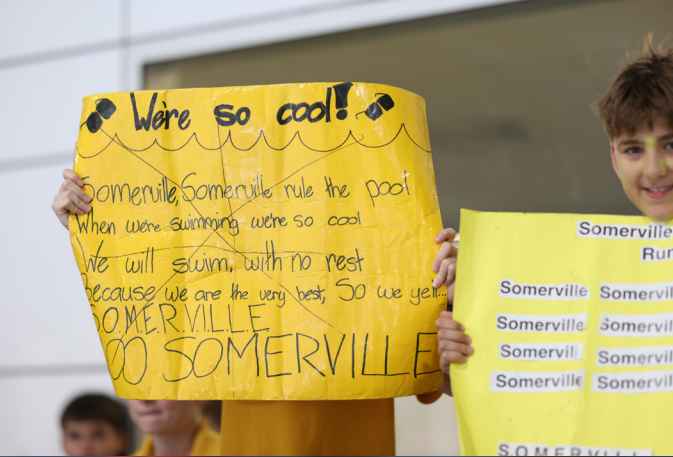 We're so cool!
Somerville, Somerville rule the pool
When we're swimming we're so cool
We will swim, with no rest
Because we are the very best, So we yell...
S.O.M.E.R.V.I.L.L.E
GO SOMERVILLE
Somerville
Run
Somerville Somerville
Somerville Somerville
Somerville Somerville
Somerville Somerville
S.O.M.E.R.V.I.L.L.E